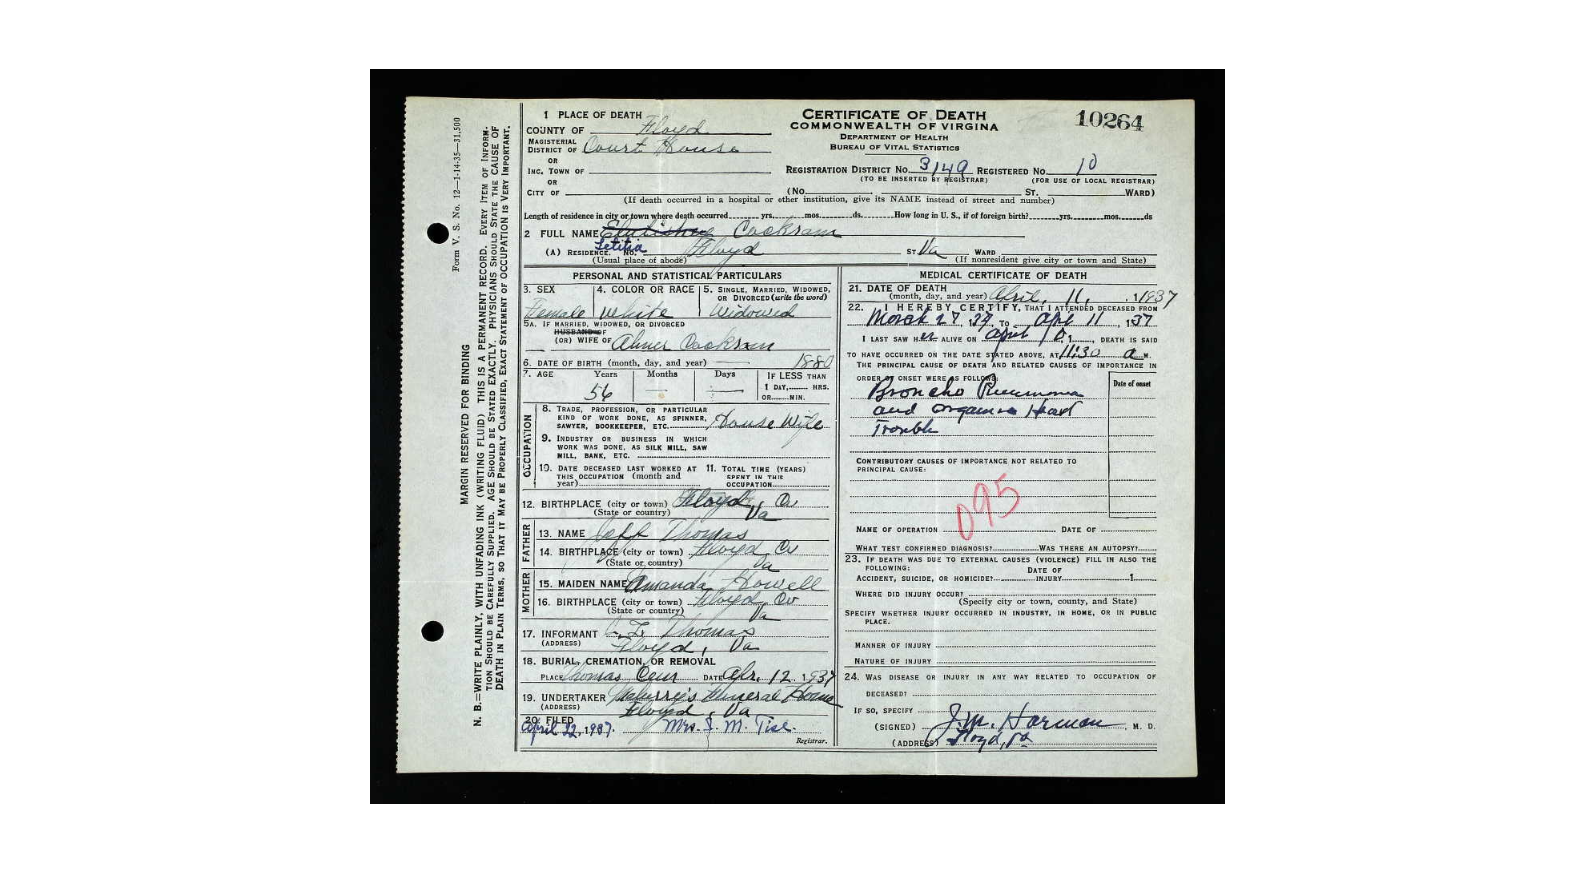 Form V. S. No. 12—1-14-35—31,500
MARGIN RESERVED FOR BINDING
N. B.—WRITE PLAINLY, WITH UNFADING INK (WRITING FLUID). THIS IS A PERMANENT RECORD. EVERY ITEM OF INFORM-
TION SHOULD BE CAREFULLY SUPPLIED. AGE SHOULD BE STATED EXACTLY. PHYSICIANS SHOULD STATE THE CAUSE OF
DEATH IN PLAIN TERMS, SO THAT IT MAY BE PROPERLY CLASSIFIED, EXACT STATEMENT OF OCCUPATION IS VERY IMPORTANT.
CERTIFICATE OF DEATH
COMMONWEALTH OF VIRGINIA
DEPARTMENT OF HEALTH
BUREAU OF VITAL STATISTICS
10264
1 PLACE OF DEATH
COUNTY OF Floyd
MAGISTERIAL
DISTRICT OF Court House
OR
INC. TOWN OF
OR
CITY OF
REGISTRATION DISTRICT NO. 3149 REGISTERED NO. 10
(TO BE INSERTED BY REGISTRAR) (FOR USE OF LOCAL REGISTRAR)
(No. ST. WARD)
(If death occurred in a hospital or other institution, give its NAME instead of street and number)
Length of residence in city or town where death occurred yrs. mos. ds. How long in U. S., if of foreign birth? yrs. mos. ds
2 FULL NAME Cockram
Letitia
(A) RESIDENCE. No. Floyd ST. Va WARD
(Usual place of abode) (If nonresident give city or town and State)
PERSONAL AND STATISTICAL PARTICULARS
3. SEX 4. COLOR OR RACE 5. SINGLE, MARRIED, WIDOWED,
OR DIVORCED (write the word)
Female White Widowed
5A. IF MARRIED, WIDOWED, OR DIVORCED
HUSBAND OF
(OR) WIFE OF Abner Cockram
6. DATE OF BIRTH (month, day, and year) 1880
7. AGE Years Months Days IF LESS THAN
1 DAY, HRS.
OR MIN.
56
OCCUPATION
8. TRADE, PROFESSION, OR PARTICULAR
KIND OF WORK DONE, AS SPINNER,
SAWYER, BOOKKEEPER, ETC. House Wife
9. INDUSTRY OR BUSINESS IN WHICH
WORK WAS DONE, AS SILK MILL, SAW
MILL, BANK, ETC.
10. DATE DECEASED LAST WORKED AT 11. TOTAL TIME (YEARS)
THIS OCCUPATION (month and SPENT IN THIS
year) OCCUPATION
12. BIRTHPLACE (city or town) Floyd Co
(State or country) Va
FATHER
13. NAME Jeff Thomas
14. BIRTHPLACE (city or town) Floyd Co
(State or country) Va
MOTHER
15. MAIDEN NAME Amanda Howell
16. BIRTHPLACE (city or town) Floyd Co
(State or country) Va
17. INFORMANT Thomas
(ADDRESS) Floyd, Va
18. BURIAL, CREMATION, OR REMOVAL
PLACE Thomas Cem DATE Apr. 12, 1937
19. UNDERTAKER Funeral Home
(ADDRESS) Floyd, Va
20. FILED
April 22, 1937. Mrs. J. M. Tise.
Registrar.
MEDICAL CERTIFICATE OF DEATH
21. DATE OF DEATH
(month, day, and year) April, 11, 1937
22. I HEREBY CERTIFY, THAT I ATTENDED DECEASED FROM
March 27, 37, TO Apr 11 1937
I LAST SAW HER ALIVE ON April 10, 1 , DEATH IS SAID
TO HAVE OCCURRED ON THE DATE STATED ABOVE, AT 11:30 a M.
THE PRINCIPAL CAUSE OF DEATH AND RELATED CAUSES OF IMPORTANCE IN
ORDER OF ONSET WERE AS FOLLOWS:
Date of onset
Broncho Pneumonia
and organic Heart
Trouble
CONTRIBUTORY CAUSES OF IMPORTANCE NOT RELATED TO
PRINCIPAL CAUSE:
095
NAME OF OPERATION DATE OF
WHAT TEST CONFIRMED DIAGNOSIS? WAS THERE AN AUTOPSY?
23. IF DEATH WAS DUE TO EXTERNAL CAUSES (VIOLENCE) FILL IN ALSO THE
FOLLOWING: DATE OF
ACCIDENT, SUICIDE, OR HOMICIDE? INJURY 1
WHERE DID INJURY OCCUR?
(Specify city or town, county, and State)
SPECIFY WHETHER INJURY OCCURRED IN INDUSTRY, IN HOME, OR IN PUBLIC
PLACE.
MANNER OF INJURY
NATURE OF INJURY
24. WAS DISEASE OR INJURY IN ANY WAY RELATED TO OCCUPATION OF
DECEASED?
IF SO, SPECIFY
(SIGNED) J.M. Harman, M. D.
(ADDRESS) Floyd, Va